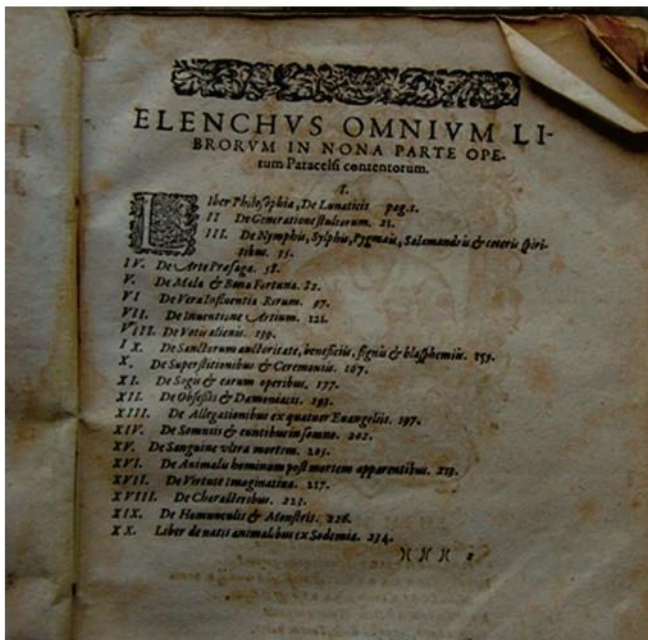 ELENCHVS OMNIVM LI-
BRORVM IN NONA PARTE OPE-
rum Paracelſi contentorum.
I.
LIber Philoſophia, De Lunaticis pag. 1.
II De Generatione ſtultorum. 21.
III. De Nymphis, Sylphis, Pygmæis, Salamandris & ceteris ſpiri-
tibus. 35.
IV. De Arte Præſaga. 58.
V. De Mala & Bona Fortuna. 82.
VI De Vera Influentia Rerum. 97.
VII. De Inuentione Artium. 121.
VIII. De Votis alienis. 139.
IX. De Sanctorum auctoritate, beneficiis, ſignis & blaſphemiis. 153.
X. De Superſtitionibus & Ceremoniis. 167.
XI. De Sagis & earum operibus. 177.
XII. De Obſeſſis & Dæmoniacis. 193.
XIII. De Allegationibus ex quatuor Euangeliis. 197.
XIV. De Somniis & euntibus in ſomno. 202.
XV. De Sanguine vltra mortem. 205.
XVI. De Animalis hominum poſt mortem apparentibus. 213.
XVII. De Virtute Imaginatiua. 217.
XVIII. De Characteribus. 223.
XIX. De Homunculis & Monſtris. 226.
XX. Liber de natis animalibus ex Sodomia. 234.